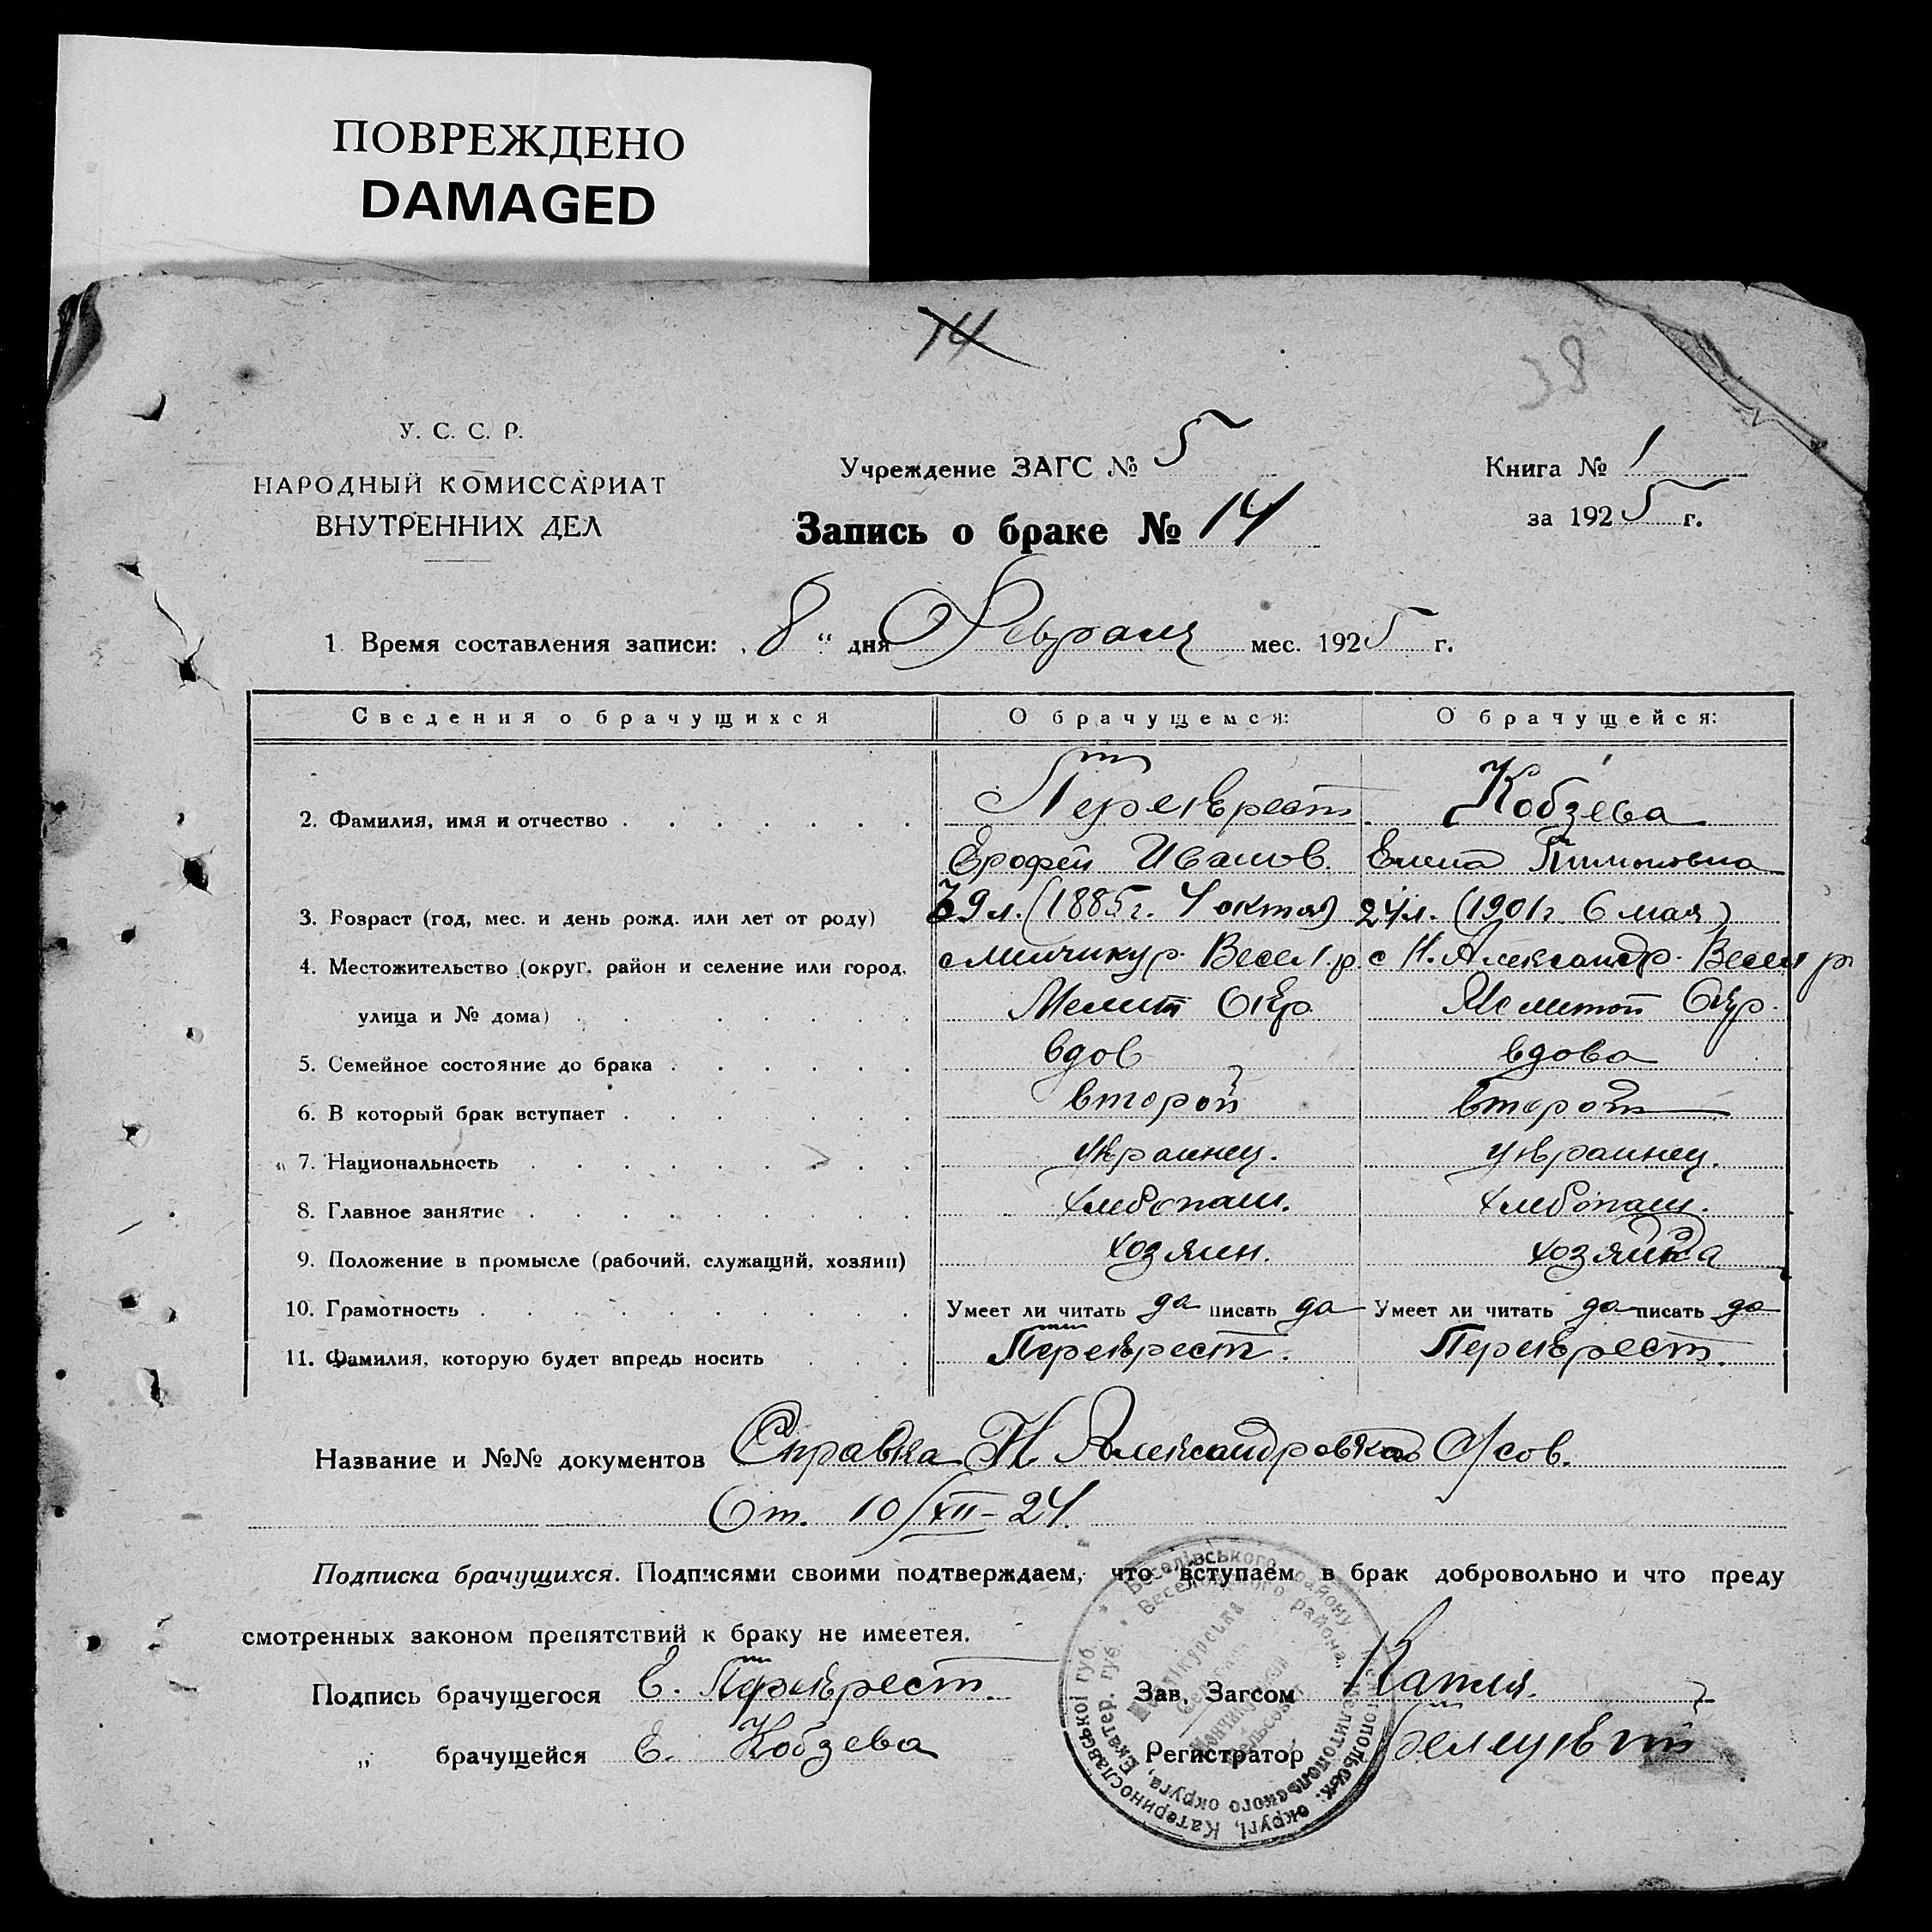 ПОВРЕЖДЕНО
DAMAGED
14
38
У. С. С. Р.
НАРОДНЫЙ КОМИССАРИАТ
ВНУТРЕННИХ ДЕЛ
Учреждение ЗАГС № 5
Запись о браке № 14
Книга № 1
за 1925 г.
1 Время составления записи: „ 8 “ дня Февраля мес. 1925 г.
Сведения о брачущихся О брачущемся: О брачущейся:
2. Фамилия, имя и отчество Перекрест Кобзева
Ерофей Иванов. Елена Пимоновна
3. Возраст (год, мес. и день рожд. или лет от роду) 39 л. (1885 г. 4 октяб) 24 л. (1901 г. 6 мая)
4. Местожительство (округ, район и селение или город, с Менчикур. Весел р. с Н. Александр. Весел р
улица и № дома) Мелит Окр. Мелитоп Окр.
5. Семейное состояние до брака вдов вдова
6. В который брак вступает второй второй
7. Национальность украинец. украинец.
8. Главное занятие хлебопаш. хлебопаш.
9. Положение в промысле (рабочий, служащий, хозяин) хозяин. хозяйка
10. Грамотность Умеет ли читать да писать да Умеет ли читать да писать да
11. Фамилия, которую будет впредь носить Перекрест. Перекрест.
Название и №№ документов Справка Н. Александровская С/сов.
От. 10/XII-24.
Подписка брачущихся. Подписями своими подтверждаем, что вступаем в брак добровольно и что преду
смотренных законом препятствий к браку не имеется.
Подпись брачущегося Е. Перекрест. Зав. Загсом Капля.
„ брачущейся Е. Кобзева Регистратор
Веселівського району, Мелітопольськ. округі, Катеринославської губ.
Веселовского района, Мелитопольского округа, Екатер. губ.
Менчікурська
Сельрада
Менчикурский
Сельсовет